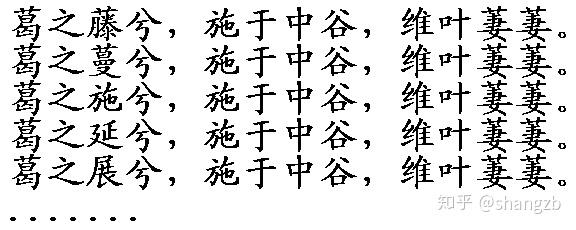 葛之藤兮，施于中谷，维叶萋萋。
葛之蔓兮，施于中谷，维叶萋萋。
葛之施兮，施于中谷，维叶萋萋。
葛之延兮，施于中谷，维叶萋萋。
葛之展兮，施于中谷，维叶萋萋。
.......
知乎 @shangzb